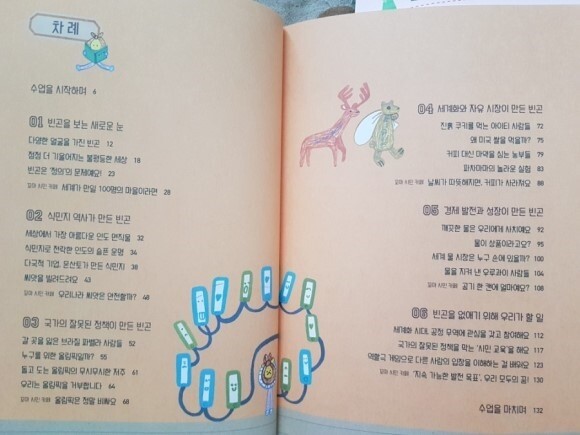 차례
수업을 시작하며 6
01 빈곤을 보는 새로운 눈
다양한 얼굴을 가진 빈곤 12
점점 더 기울어지는 불평등한 세상 18
빈곤은 '정의'의 문제예요! 23
꼬마 시민 카페 세계가 만일 100명의 마을이라면 28
02 식민지 역사가 만든 빈곤
세상에서 가장 아름다운 인도 면직물 32
식민지로 전락한 인도의 슬픈 운명 34
다국적 기업, 몬산토가 만든 식민지 38
씨앗을 빌려드려요 43
꼬마 시민 카페 우리나라 씨앗은 안전할까? 48
03 국가의 잘못된 정책이 만든 빈곤
갈 곳을 잃은 브라질 파벨라 사람들 52
누구를 위한 올림픽일까? 55
돌고 도는 올림픽의 무시무시한 저주 61
우리는 올림픽을 거부합니다 64
꼬마 시민 카페 올림픽은 정말 비싸요 68
04 세계화와 자유 시장이 만든 빈곤
진흙 쿠키를 먹는 아이티 사람들 72
왜 미국 쌀을 먹을까? 75
커피 대신 마약을 심는 농부들 79
파차마마의 놀라운 실험 83
꼬마 시민 카페 날씨가 따뜻해지면, 커피가 사라져요 88
05 경제 발전과 성장이 만든 빈곤
깨끗한 물은 우리에게 사치예요 92
물이 상품이라고요? 95
세계 물 시장은 누구 손에 있을까? 100
물을 지켜 낸 우루과이 사람들 104
꼬마 시민 카페 공기 한 캔에 얼마예요? 108
06 빈곤을 없애기 위해 우리가 할 일
세계화 시대, 공정 무역에 관심을 갖고 참여해요 112
국가의 잘못된 정책을 막는 '시민 교육'을 해요 117
역할극 게임으로 다른 사람의 입장을 이해하는 걸 배워요 123
꼬마 시민 카페 '지속 가능한 발전 목표', 우리 모두의 꿈! 130
수업을 마치며 132